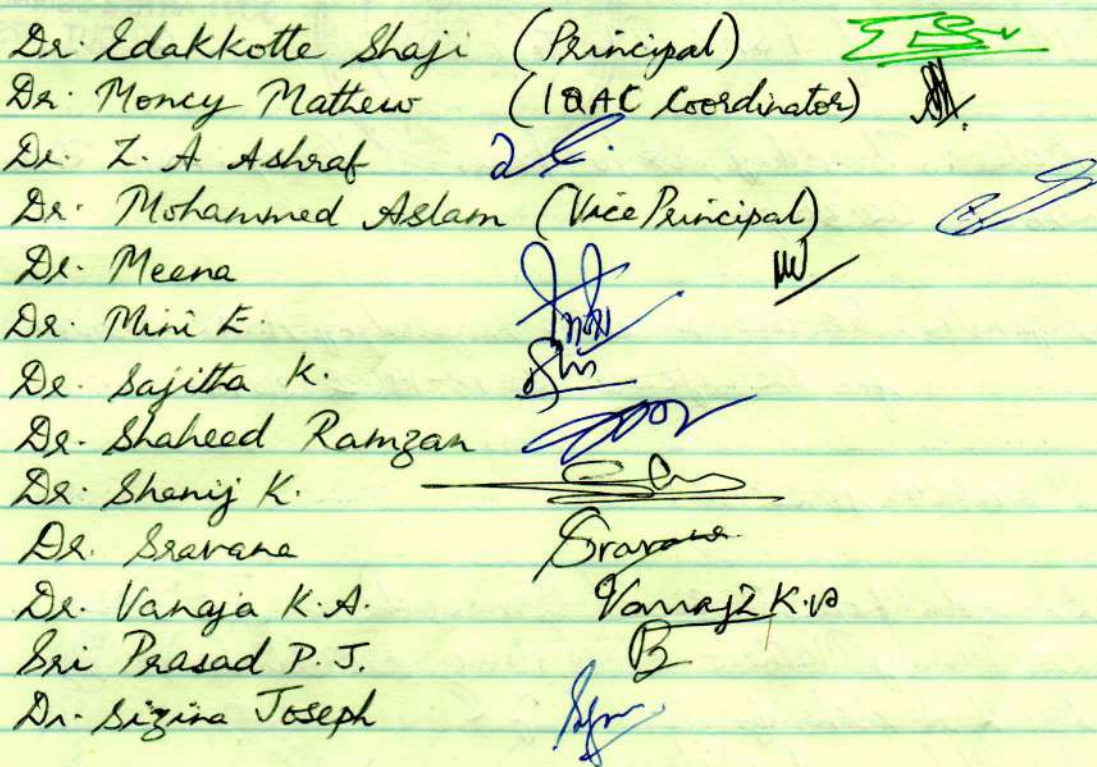 Dr. Edakkotte Shaji (Principal)
Dr. Moncy Mathew (IQAC Coordinator)
Dr. Z. A Ashraf
Dr. Mohammed Aslam (Vice Principal)
Dr. Meena
Dr. Mini E.
Dr. Sajitha K.
Dr. Shaheed Ramzan
Dr. Shanij K.
Dr. Sravana
Dr. Vanaja K.A.
Sri Prasad P. J.
Dr. Sizina Joseph